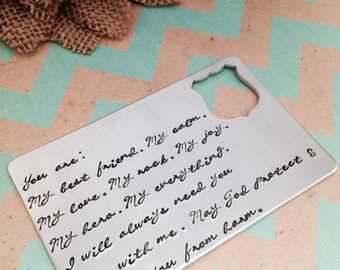 You are:
My best friend. My calm.
My love. My rock. My joy.
My hero. My everything.
I will always need you
with me. May God protect &
you from harm.